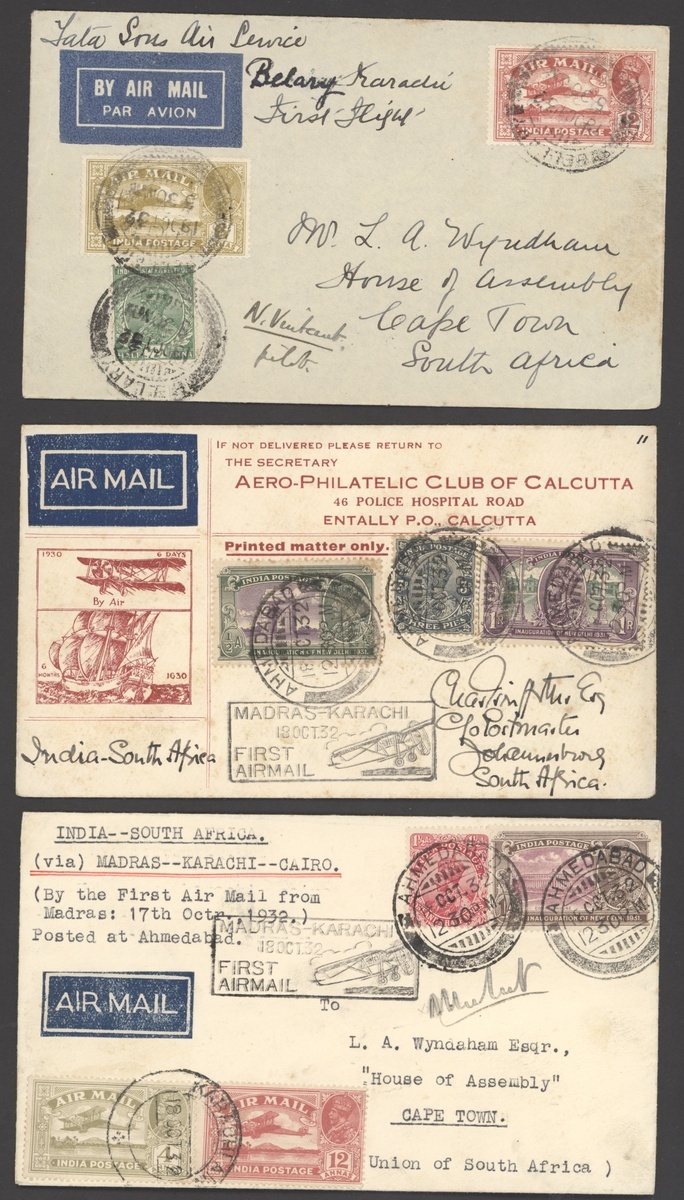 Tata Sons Air Service
BY AIR MAIL
PAR AVION
Belary Karachi
First Flight
AIR MAIL
INDIA POSTAGE
AIR MAIL
INDIA POSTAGE
Mr. L. A. Wyndham
House of Assembly
Cape Town
South Africa
N. Vintcent.
pilot.
AIR MAIL
IF NOT DELIVERED PLEASE RETURN TO
THE SECRETARY
AERO-PHILATELIC CLUB OF CALCUTTA
46 POLICE HOSPITAL ROAD
ENTALLY P.O., CALCUTTA
Printed matter only.
11
1930 6 DAYS
By Air
6 MONTHS 1630
INDIA POSTAGE
INAUGURATION OF NEW DELHI 1931.
THREE PIES
1R 1R
INAUGURATION OF NEW DELHI 1931.
AHMEDABAD
18 OCT 32
MADRAS-KARACHI
18OCT.32
FIRST
AIRMAIL
India-South Africa
C/o Postmaster
Johannesburg
South Africa.
INDIA--SOUTH AFRICA.
(via) MADRAS--KARACHI--CAIRO.
(By the First Air Mail from
Madras: 17th Octr. 1932.)
Posted at Ahmedabad.
AHMEDABAD
OCT 32
12.30PM
INDIA POSTAGE
INAUGURATION OF NEW DELHI 1931.
AHMEDABAD
OCT 32
12.30
MADRAS-KARACHI
18OCT.32
FIRST
AIRMAIL
AIR MAIL
To
L. A. Wyndaham Esqr.,
"House of Assembly"
CAPE TOWN.
Union of South Africa )
AIR MAIL
INDIA POSTAGE
KARACHI
18 OCT 32
AIR MAIL
INDIA POSTAGE
12
ANNAS